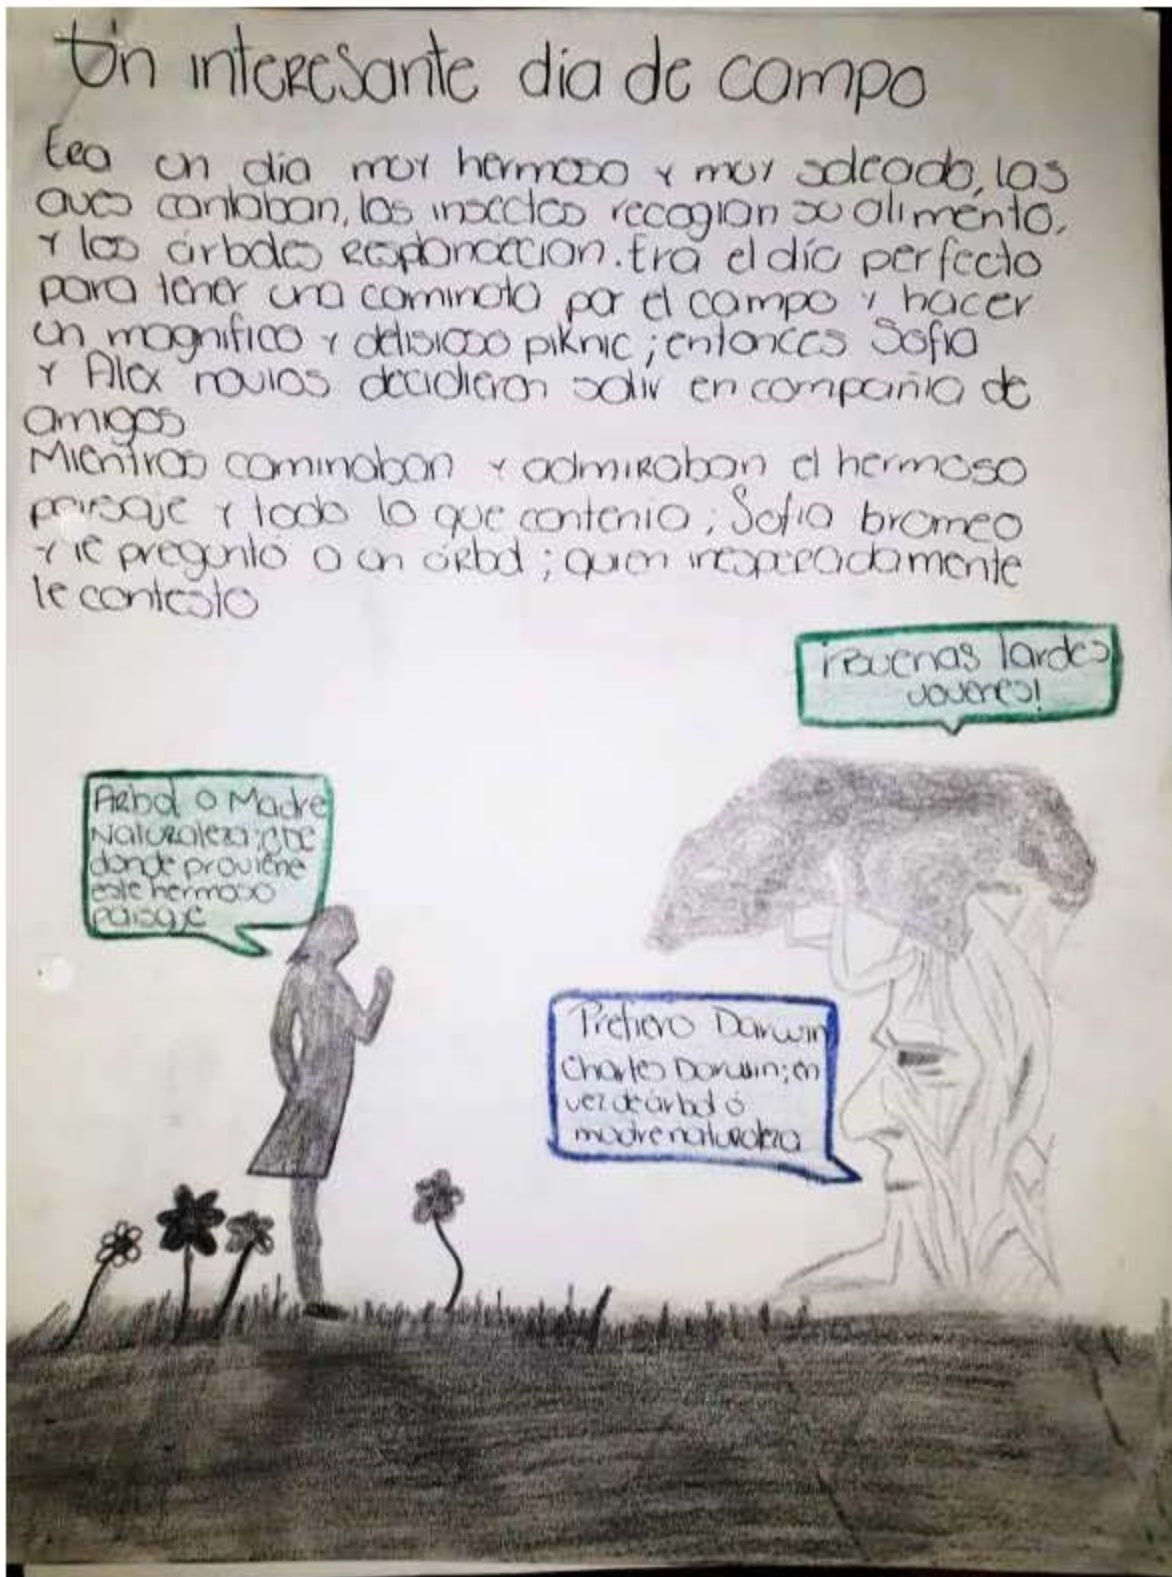 Un interesante dia de campo
Era un día muy hermoso y muy soleado, las
aves cantaban, los insectos recogian su alimento,
y los árboles resplandecian. Era el día perfecto
para tener una caminata por el campo y hacer
un magnifico y delisioso piknic; entonces Sofia
y Alex novios decidieron salir en compañia de
amigos
Mientras caminaban y admiraban el hermoso
paisaje y todo lo que contenia; Sofia bromeo
y le pregunto a un árbol; quien inesperadamente
le contesto
¡Buenas tardes
jovenes!
Arbol o Madre
Naturaleza; ¿De
donde proviene
este hermoso
paisaje
Prefiero Darwin
Charles Darwin; en
vez de árbol ó
madre naturaleza